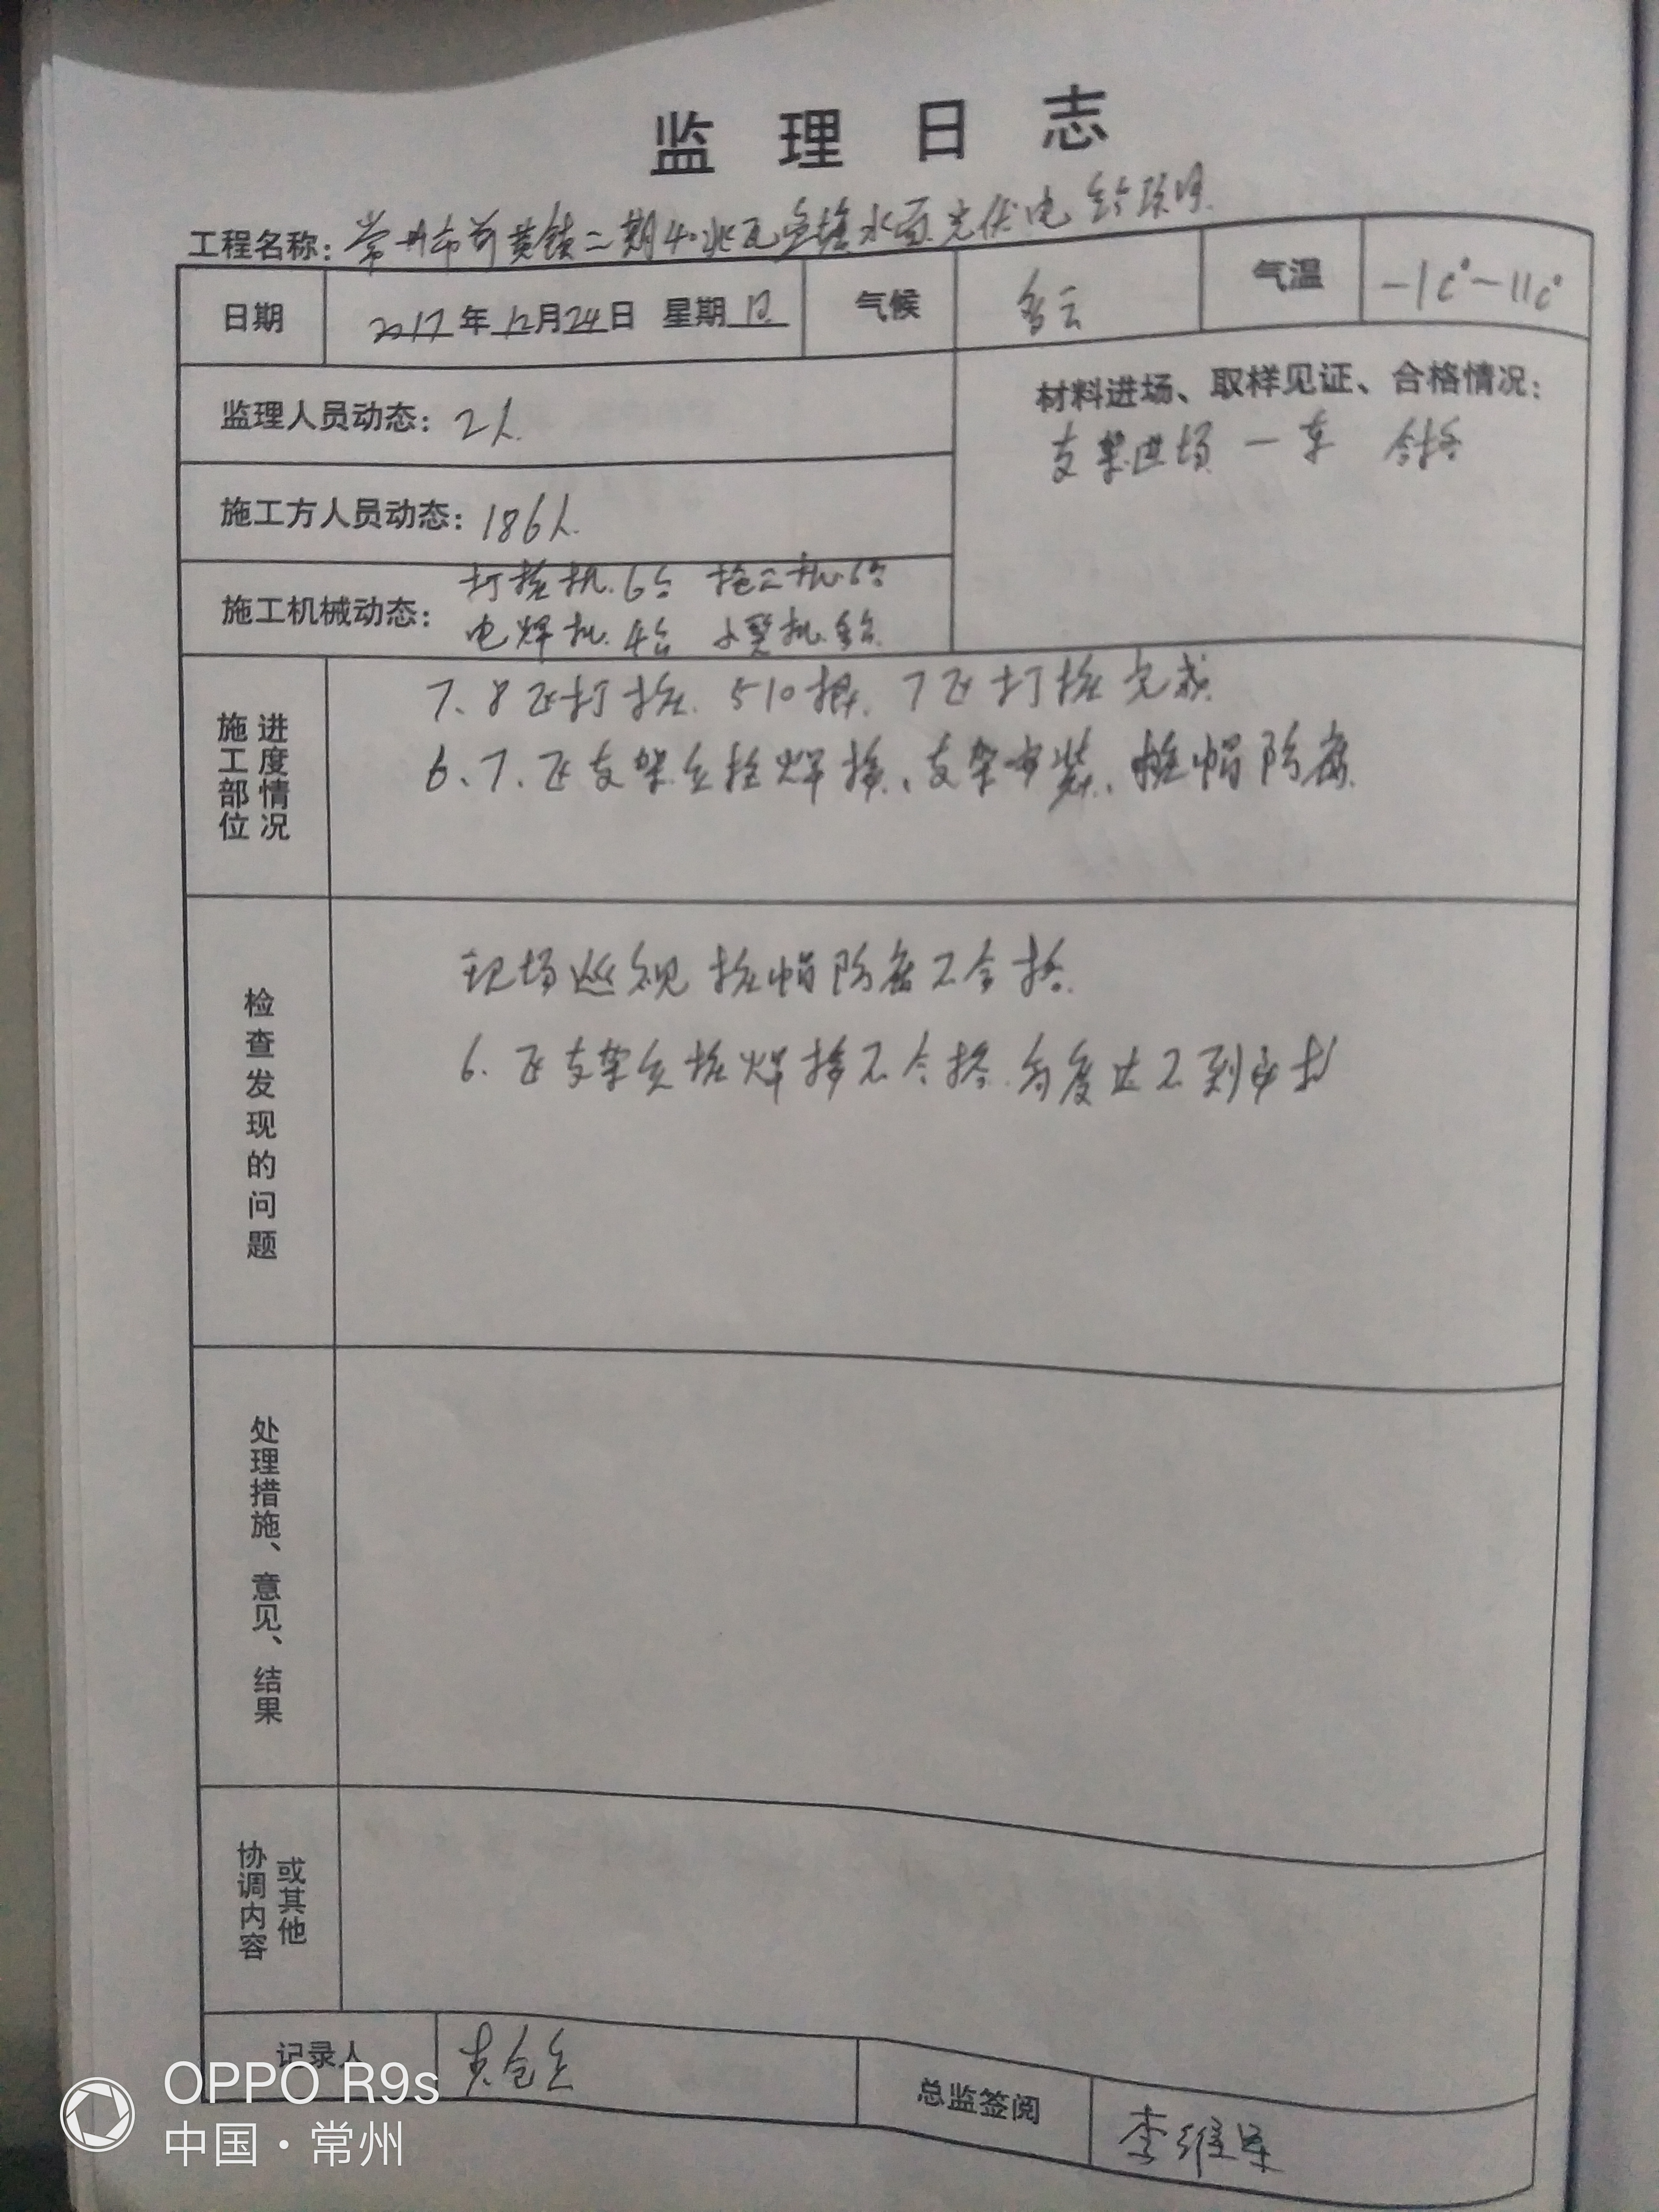 监理日志
工程名称: 常州市 黄镇二期40兆瓦鱼塘水面光伏电站项目
日期 2017年12月24日 星期日 气候 多云 气温 -1C°-11C°
监理人员动态: 2人
材料进场、取样见证、合格情况:
支架进场 一车 合格
施工方人员动态: 186人
施工机械动态: 打桩机6台 拖 机6台
电焊机4台 机 台
施工部位 进度情况
7、8区打桩 510根 7区打桩完成
6、7区支架 桩焊接、支架安装、桩帽防腐
检查发现的问题
现场巡视桩帽防腐不合格
6区支架 桩焊接不合格 度达不到
处理措施、意见、结果
协调内容 或其他
记录人
总监签阅 李维军
OPPO R9s
中国·常州